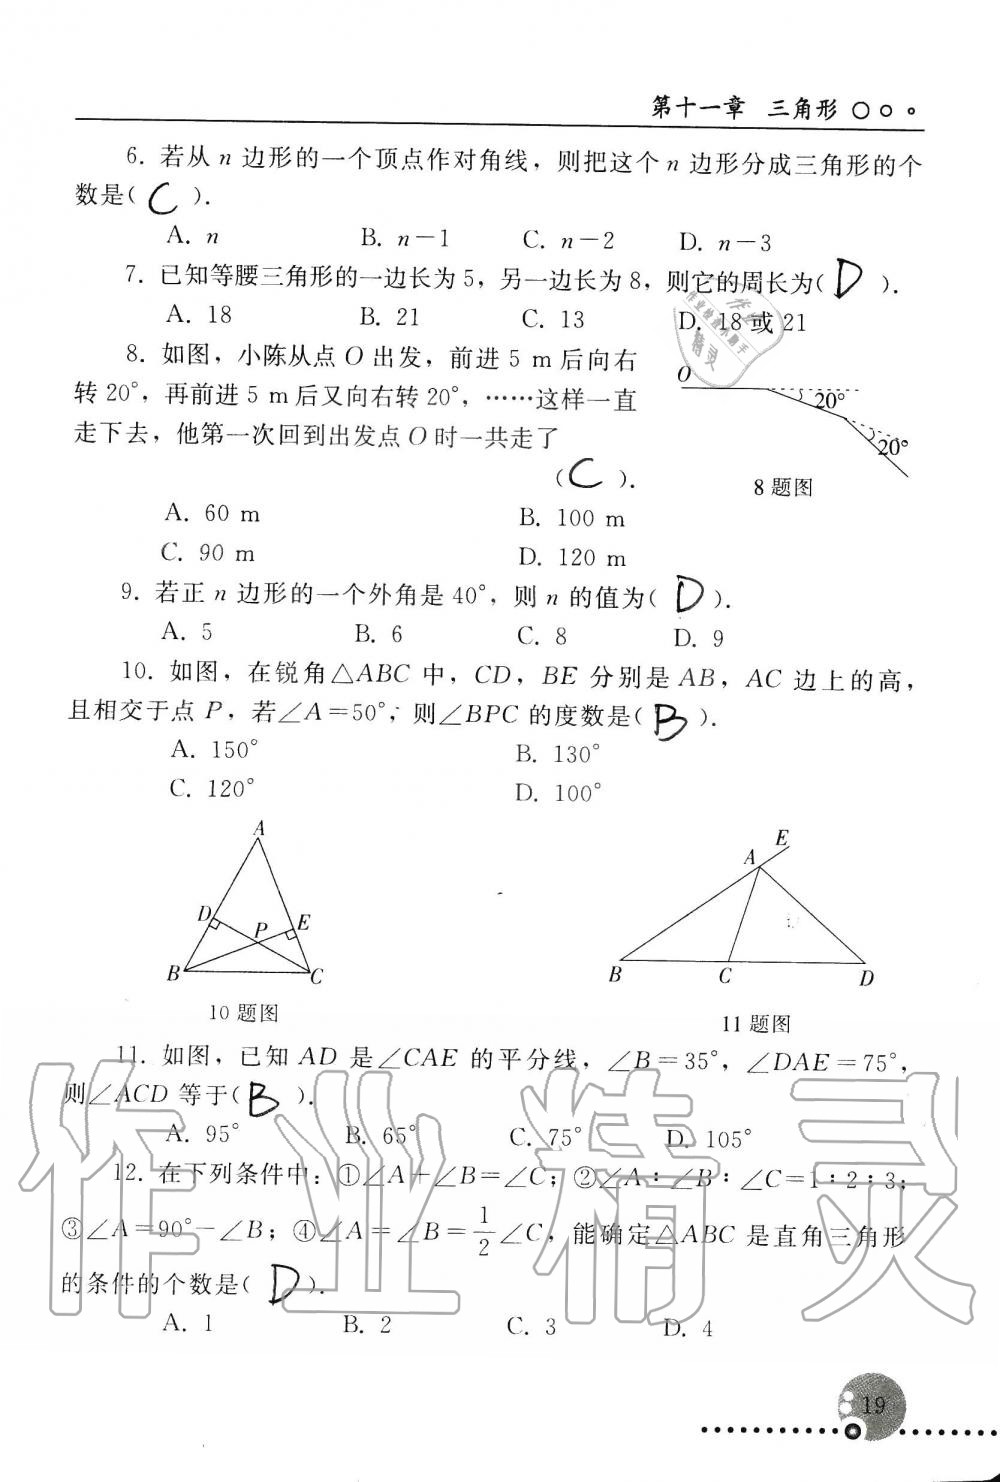 第十一章 三角形
6. 若从 n 边形的一个顶点作对角线，则把这个 n 边形分成三角形的个
数是( C ).
A. n B. n－1 C. n－2 D. n－3
7. 已知等腰三角形的一边长为 5，另一边长为 8，则它的周长为( D ).
A. 18 B. 21 C. 13 D. 18 或 21
8. 如图，小陈从点 O 出发，前进 5 m 后向右
转 20°，再前进 5 m 后又向右转 20°，……这样一直
走下去，他第一次回到出发点 O 时一共走了
( C ).
O
20°
20°
8 题图
A. 60 m B. 100 m
C. 90 m D. 120 m
9. 若正 n 边形的一个外角是 40°，则 n 的值为( D ).
A. 5 B. 6 C. 8 D. 9
10. 如图，在锐角△ABC 中，CD，BE 分别是 AB，AC 边上的高，
且相交于点 P，若∠A＝50°，则∠BPC 的度数是( B ).
A. 150° B. 130°
C. 120° D. 100°
A
D
P
E
B
C
10 题图
E
A
B
C
D
11 题图
11. 如图，已知 AD 是∠CAE 的平分线，∠B＝35°，∠DAE＝75°，
则∠ACD 等于( B ).
A. 95° B. 65° C. 75° D. 105°
12. 在下列条件中：①∠A＋∠B＝∠C；②∠A∶∠B∶∠C＝1∶2∶3；
③∠A＝90°－∠B；④∠A＝∠B＝1/2∠C，能确定△ABC 是直角三角形
的条件的个数是( D ).
A. 1 B. 2 C. 3 D. 4
19
作业精灵